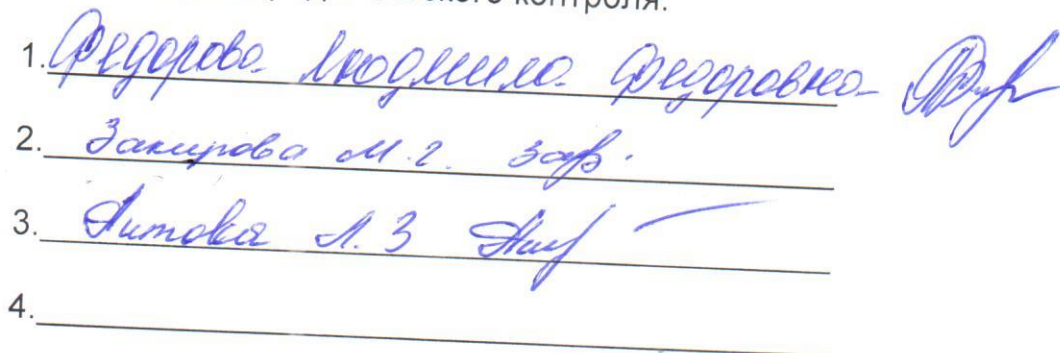 контроля.
1. Федорова Людмила Федоровна
2. Закирова М.г.
3. Л.З
4.